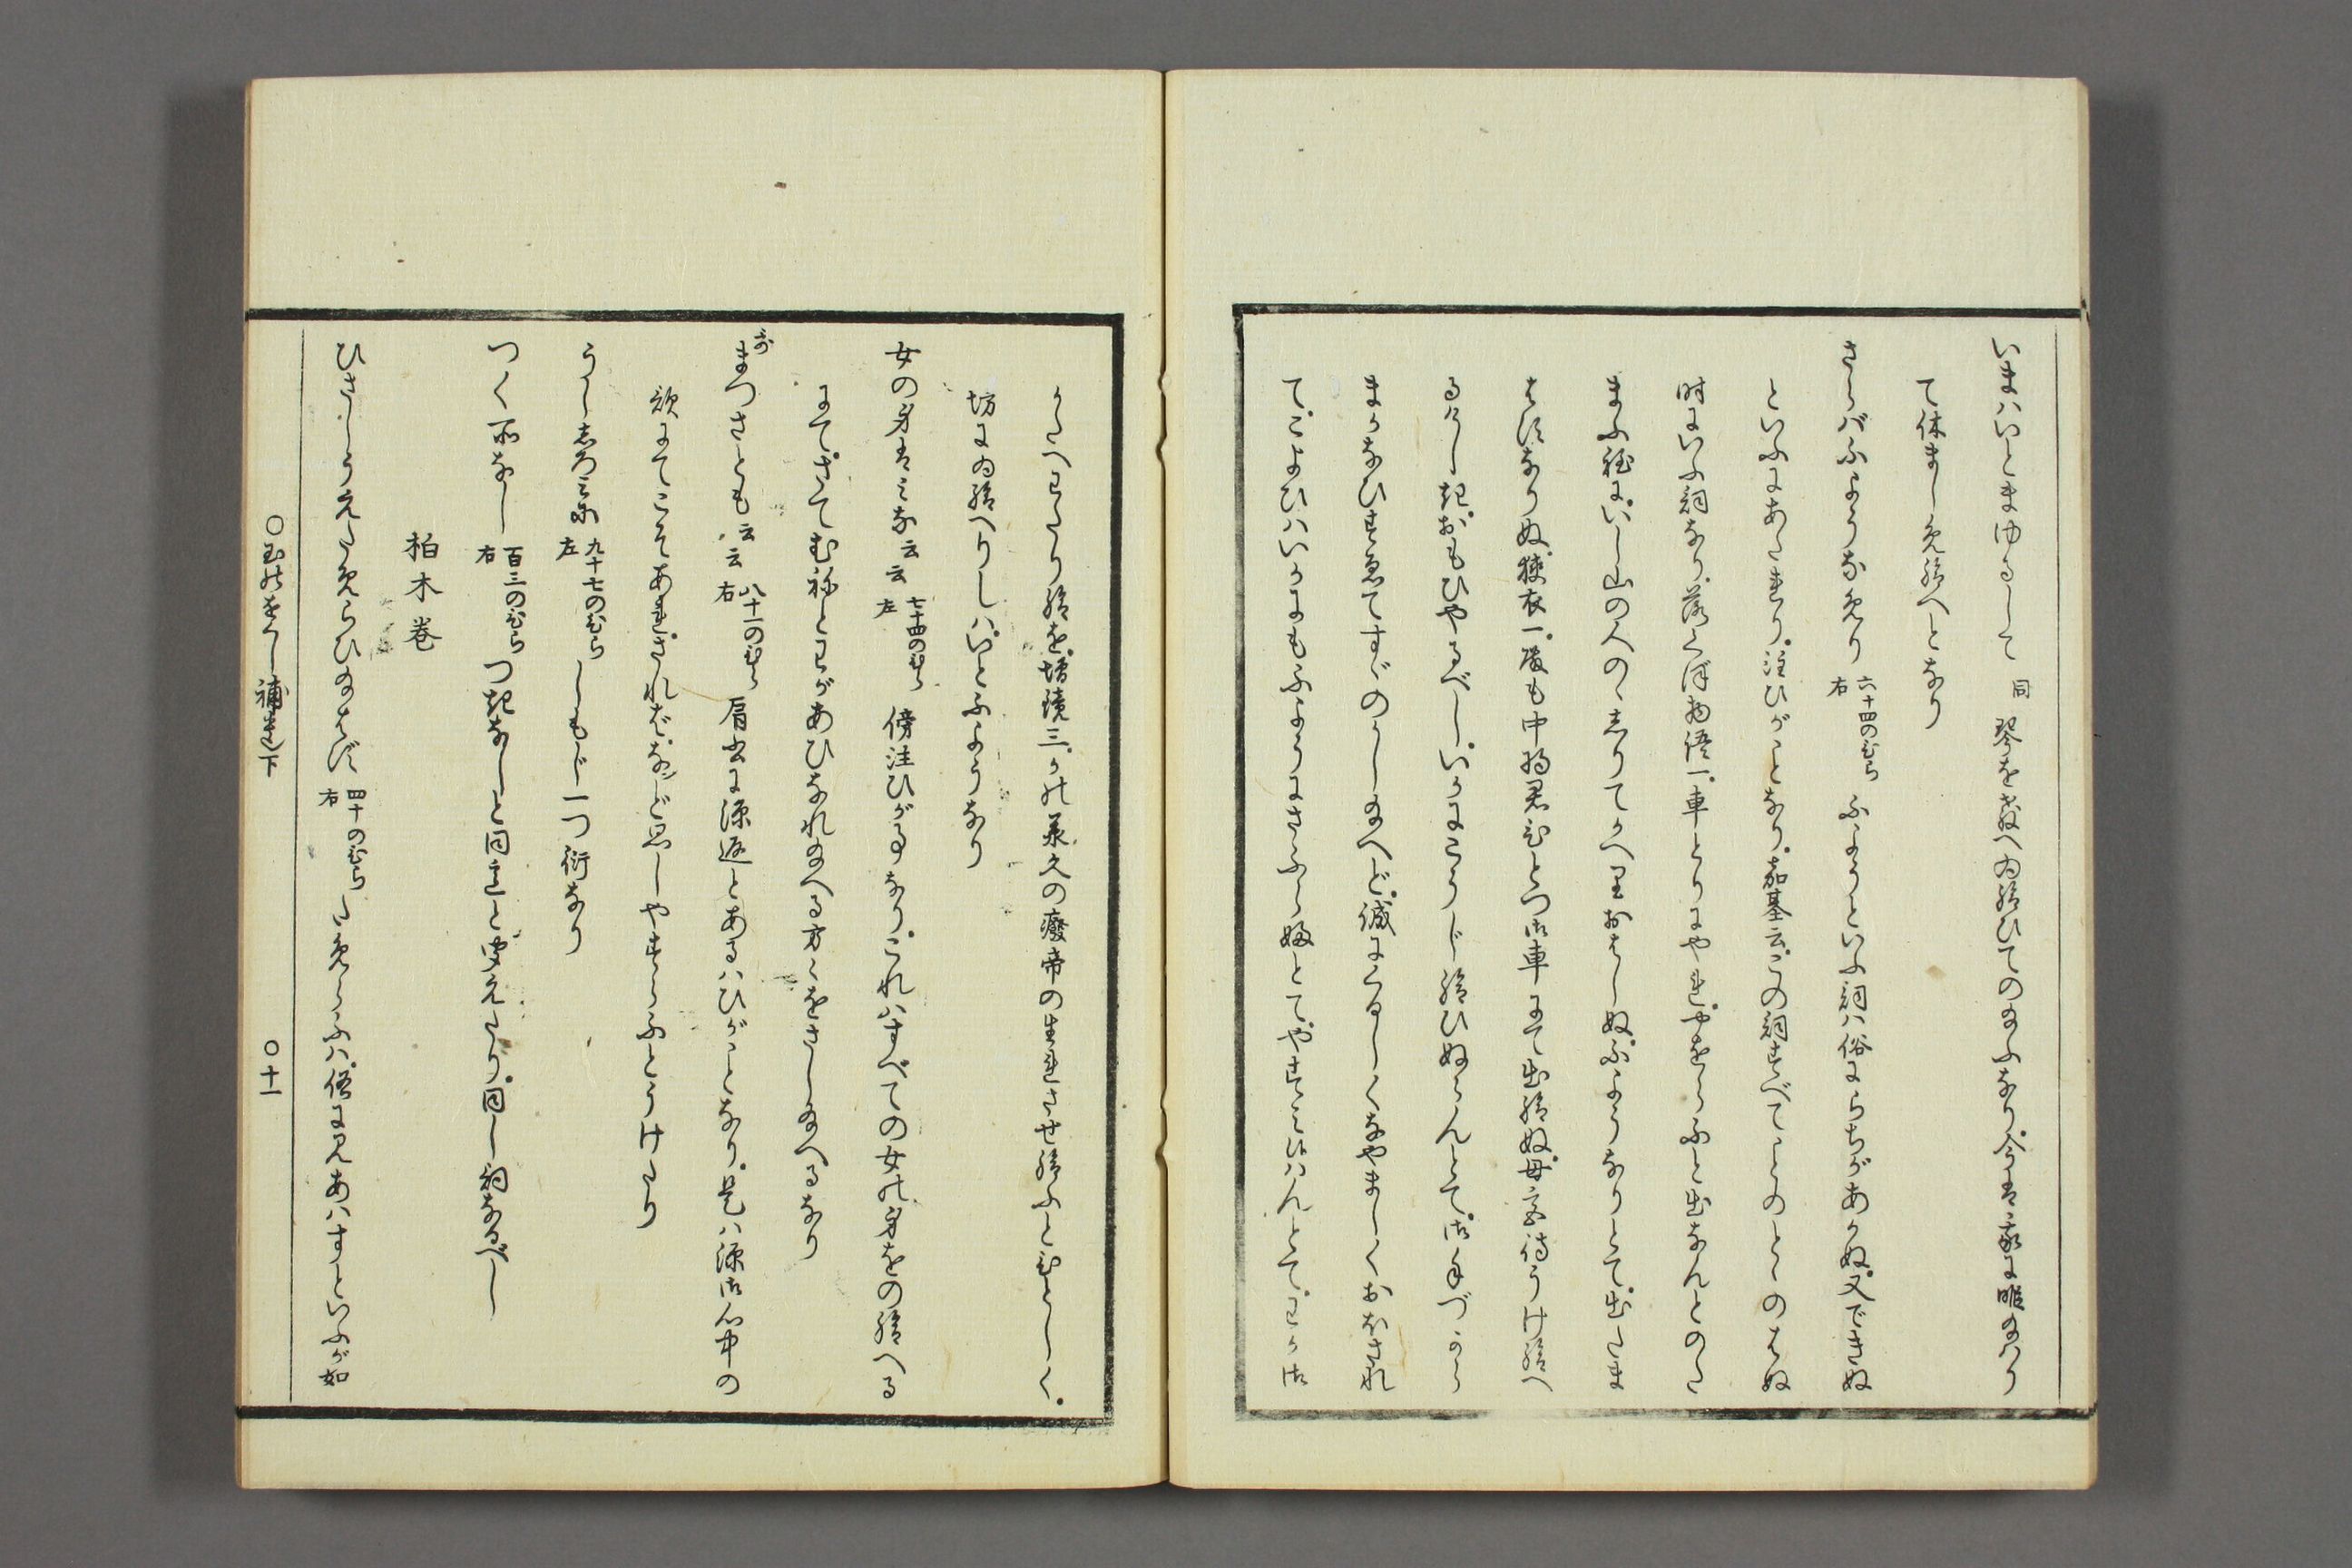 いまハいとまゆるして 同 琴を教へ為給ひてのたまふなり。今は我に暇たまハり
て休ましめ給へとなり
さらバふようなめり 六十四のひら右 ふようといふ詞ハ俗にらちがあかぬ又できぬ
といふにあたれり。注ひがことなり。嘉基云。この詞すべてことのとゝのはぬ
時にいふ詞なり。落くぼ物語一。車とりにやれ。やをらふと出なんとのた
まふ程に。いし山の人のゝしりてかへりおはしぬ。ふようなりとて。出たま
はずなりぬ。狭衣一。殿も中将君もひとつ御車にて出給ぬ。母宮待うけ給へ
るけしき。おもひやるべし。いかにこうじ給ひぬらんとて。御手づから
まかなひすゑてすゞのかしたまへど。誠にくるしくなやましくおぼされ
て。こよひハいかにもふようにさふらふとて。やすミ侍ハんとて。わか御
かたへわたり給を。増鏡三。かの承久の廃帝の生れさせ給ふとひとしく。
坊にゐ給へりしハ。いとふようなり
女の身はミな云云 七十四のひら左 傍注ひが事なり。これハすべての女の身をの給へる
にて。さてむねとわがあひなれたまへる方々をさしたまへるなり
まづさとも云云 八十一のひら右 肩書に源返とあるハひがことなり。是ハ源御心中の
歎にてこそあれ。されバ。などゝ思しやすらふとうけたり
うしろミに 九十七のひら左 しもじ一つ衍なり
つく所なし 百三のひら右 つきなしと同意と聞えたり。同し詞なるべし
柏木巻
ひさしうえためらひたまはず 四十のひら右 ためらふハ。俗に見あハすといふが如
○玉のをぐし補遺下 ○十一